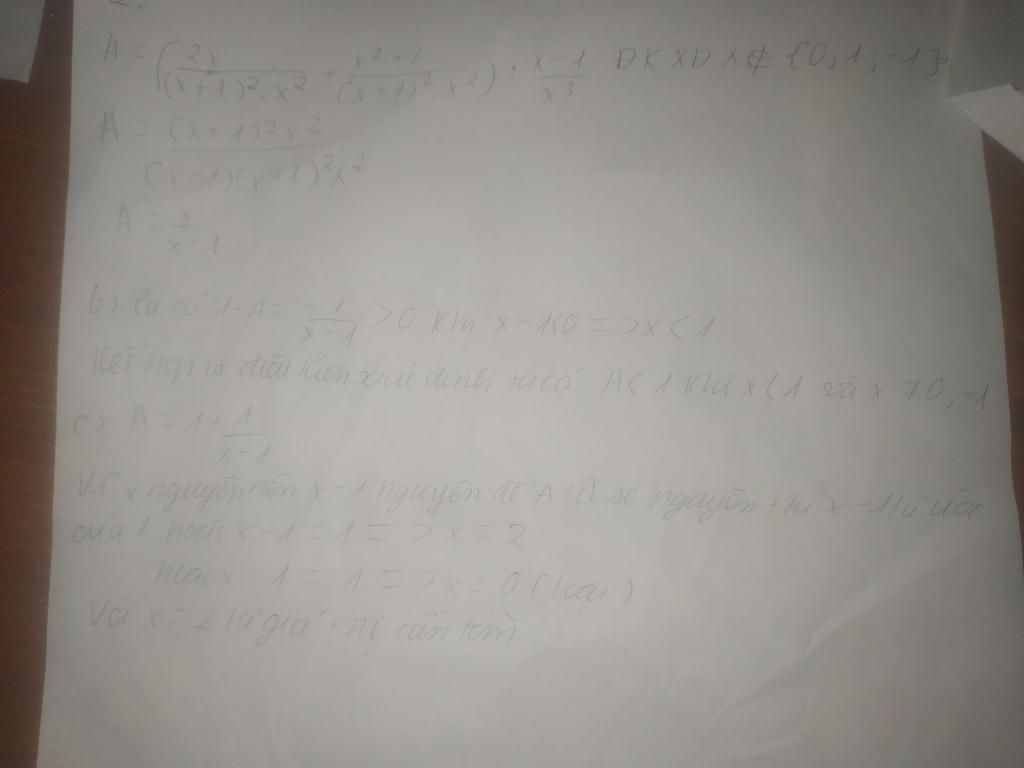 2.
A = (2x/((x+1)².x²) + (x²+1)/((x+1)²x²)) : (x-1)/x³ ĐKXĐ x∉{0,1;-1}
A = (x+1)²x²/((x-1)(x+1)²x²)
A = x/(x-1)
b) Ta có 1-A = -1/(x-1) >0 khi x-1<0 => x<1
Kết hợp vs điều kiện xác định ta có A<1 khi x<1 và x≠0;-1
c) A = 1+1/(x-1)
Vì x nguyên nên x-1 nguyên để A là số nguyên thì x-1 là ước
của 1 hoặc x-1=1=>x=2
hoặc x-1=-1=>x=0(loại)
Vậy x=2 là giá trị cần tìm